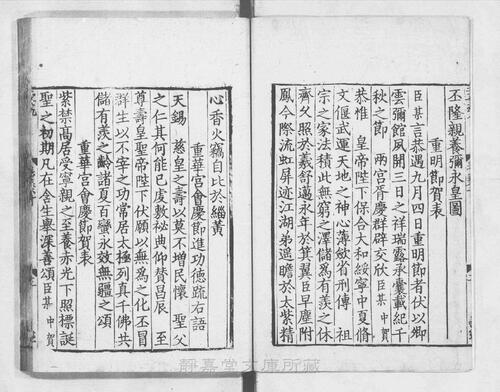 丕隆親養彌永皇圖
重明節賀表
臣某言恭遇九月四日重明節者伏以鄉
雲彌館風開三日之祥瑞露承囊載紀千
秋之節　兩宮胥慶群辟交欣臣某中賀
恭惟　皇帝陛下保合大和綏寧中夏脩
文偃武運天地之神心薄斂省刑傳　祖
宗之家法積此無窮之澤儲爲有羨之休
齊久照於羲舒邁永年於箕翼臣早塵附
鳳今際流虹屏迹江湖弟遙瞻於太紫精
心香火竊自比於緇黃
重華宮會慶節進功德疏右語
天錫　慈皇之壽以莫不增民懷　聖父
之仁其何能已虔敷秘典仰贊昌辰　至
尊壽皇聖帝陛下伏願以無爲之化丕冒
群生以不宰之功常居太極列真千佛共
儲有羨之齡諸夏百蠻永效無疆之頌
重華宮會慶節賀表
紫禁髙居受寧親之至養赤光下照標誕
聖之初期凡在含生舉深善頌臣某中賀
靜嘉堂文庫所藏